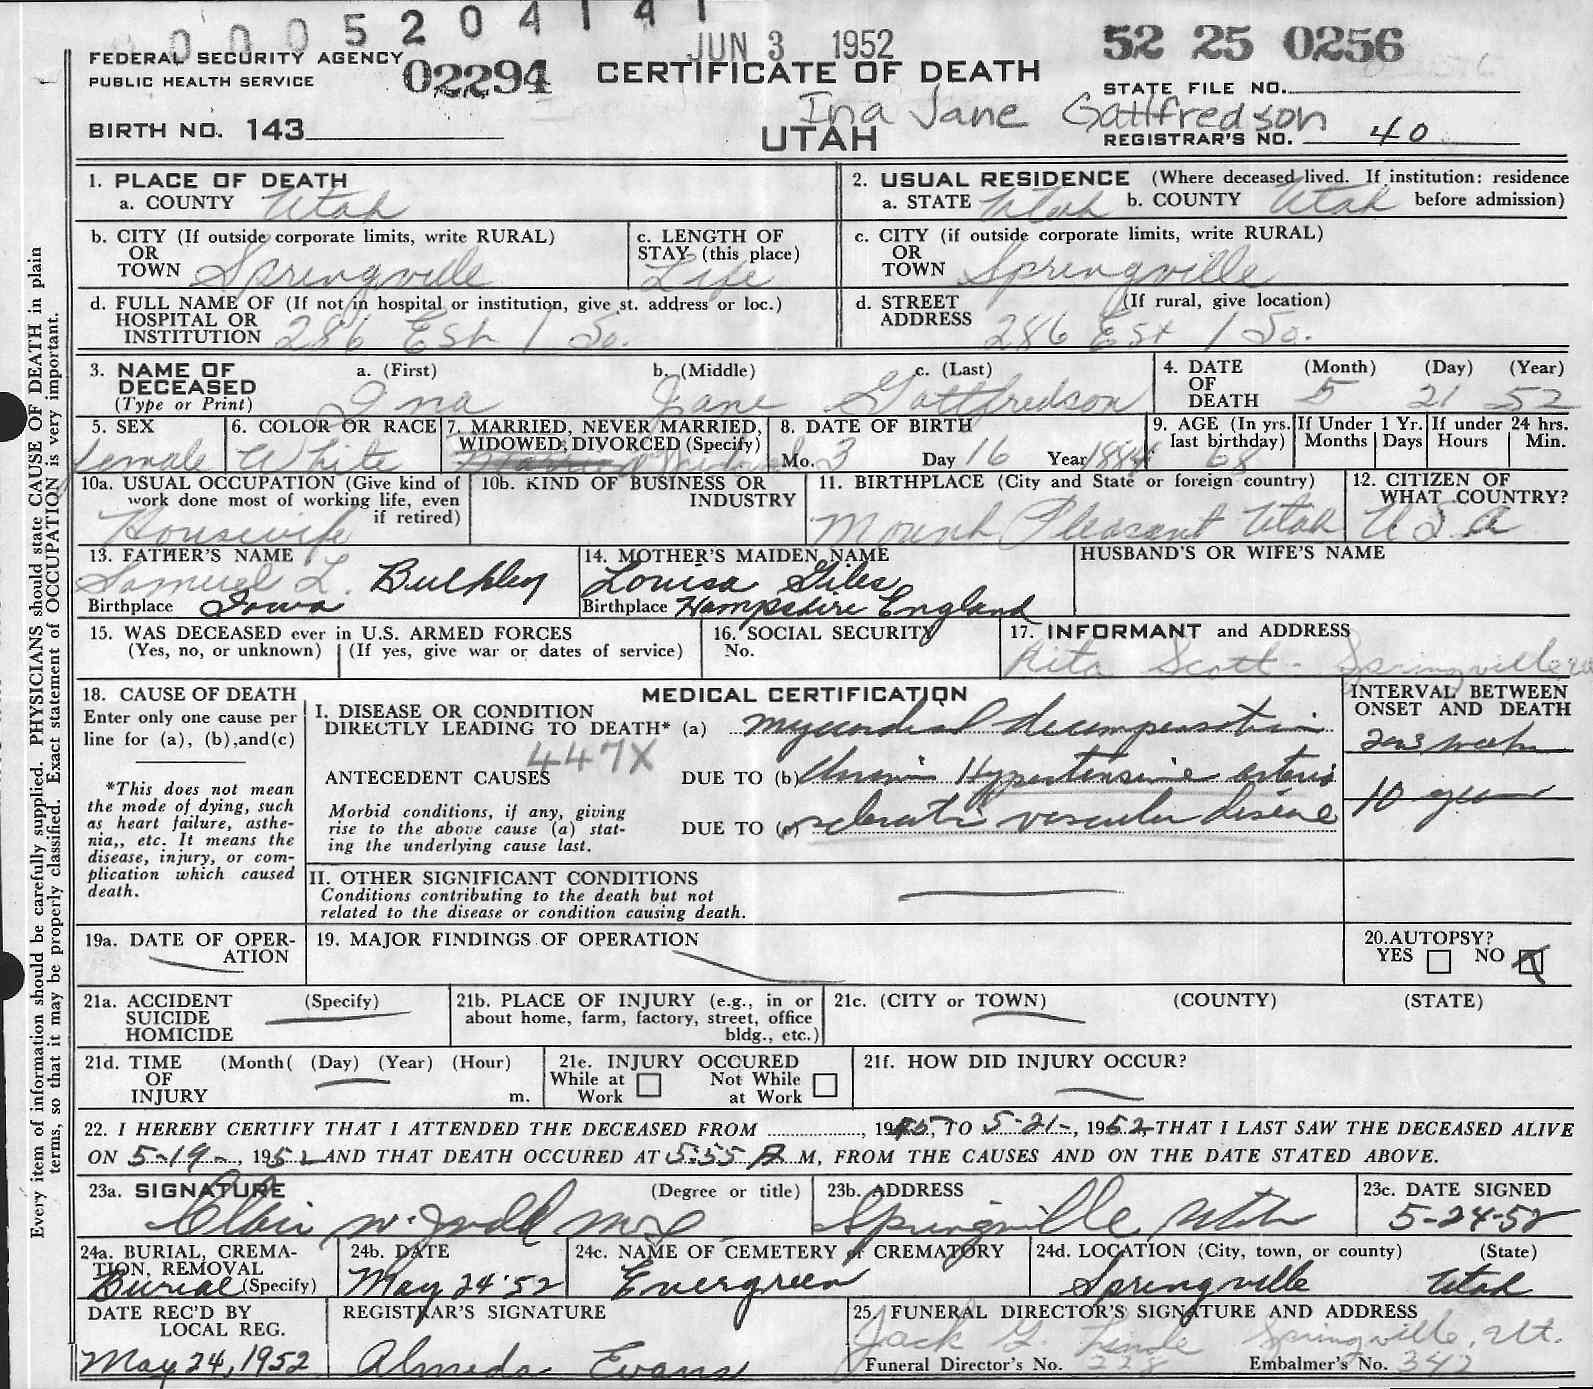 0005204141
JUN 3 1952
52 25 0256
FEDERAL SECURITY AGENCY
PUBLIC HEALTH SERVICE
02294
CERTIFICATE OF DEATH
STATE FILE NO.
Ina Jane Gottfredson
BIRTH NO. 143
UTAH
REGISTRAR'S NO. 40
Every item of information should be carefully supplied. PHYSICIANS should state CAUSE OF DEATH in plain
terms, so that it may be properly classified. Exact statement of OCCUPATION is very important.
1. PLACE OF DEATH
a. COUNTY Utah
2. USUAL RESIDENCE (Where deceased lived. If institution: residence
a. STATE Utah b. COUNTY Utah before admission)
b. CITY (If outside corporate limits, write RURAL)
OR
TOWN Springville
c. LENGTH OF
STAY (this place)
Life
c. CITY (if outside corporate limits, write RURAL)
OR
TOWN Springville
d. FULL NAME OF (If not in hospital or institution, give st. address or loc.)
HOSPITAL OR
INSTITUTION 286 Est 1 So.
d. STREET (If rural, give location)
ADDRESS 286 Est 1 So.
3. NAME OF DECEASED
(Type or Print)
a. (First) b. (Middle) c. (Last)
Ina Jane Gottfredson
4. DATE OF DEATH
(Month) (Day) (Year)
5 21 52
5. SEX
female
6. COLOR OR RACE
White
7. MARRIED, NEVER MARRIED,
WIDOWED, DIVORCED (Specify)
Widow
8. DATE OF BIRTH
Mo. 3 Day 16 Year 1884
9. AGE (In yrs.
last birthday)
68
If Under 1 Yr.
Months Days
If under 24 hrs.
Hours Min.
10a. USUAL OCCUPATION (Give kind of
work done most of working life, even
if retired)
Housewife
10b. KIND OF BUSINESS OR
INDUSTRY
11. BIRTHPLACE (City and State or foreign country)
Mount Pleasant Utah
12. CITIZEN OF
WHAT COUNTRY?
U S A
13. FATHER'S NAME
Samuel L. Bulkley
Birthplace Iowa
14. MOTHER'S MAIDEN NAME
Louisa Giles
Birthplace Hampshire England
HUSBAND'S OR WIFE'S NAME
15. WAS DECEASED ever in U.S. ARMED FORCES
(Yes, no, or unknown) (If yes, give war or dates of service)
16. SOCIAL SECURITY
No.
17. INFORMANT and ADDRESS
Rita Scott - Springville
18. CAUSE OF DEATH
Enter only one cause per
line for (a), (b), and(c)
*This does not mean
the mode of dying, such
as heart failure, asthe-
nia,, etc. It means the
disease, injury, or com-
plication which caused
death.
MEDICAL CERTIFICATION
I. DISEASE OR CONDITION
DIRECTLY LEADING TO DEATH* (a) myocardial decompensation
447X
ANTECEDENT CAUSES DUE TO (b) chronic Hypertensive arterio
Morbid conditions, if any, giving
rise to the above cause (a) stat-
ing the underlying cause last.
DUE TO (c) sclerotic vascular disease
INTERVAL BETWEEN
ONSET AND DEATH
2 or 3 weeks
10 years
II. OTHER SIGNIFICANT CONDITIONS
Conditions contributing to the death but not
related to the disease or condition causing death.
19a. DATE OF OPER-
ATION
19. MAJOR FINDINGS OF OPERATION
20.AUTOPSY?
YES NO X
21a. ACCIDENT (Specify)
SUICIDE
HOMICIDE
21b. PLACE OF INJURY (e.g., in or
about home, farm, factory, street, office
bldg., etc.)
21c. (CITY or TOWN) (COUNTY) (STATE)
21d. TIME (Month( (Day) (Year) (Hour)
OF
INJURY m.
21e. INJURY OCCURED
While at Work Not While at Work
21f. HOW DID INJURY OCCUR?
22. I HEREBY CERTIFY THAT I ATTENDED THE DECEASED FROM , 1945, TO 5-21-, 1952, THAT I LAST SAW THE DECEASED ALIVE
ON 5-19-, 1952 AND THAT DEATH OCCURED AT 5:55 P M, FROM THE CAUSES AND ON THE DATE STATED ABOVE.
23a. SIGNATURE (Degree or title)
W. Judd M.D.
23b. ADDRESS
Springville Utah
23c. DATE SIGNED
5-24-52
24a. BURIAL, CREMA-
TION, REMOVAL
Burial (Specify)
24b. DATE
May 24 '52
24c. NAME OF CEMETERY or CREMATORY
Evergreen
24d. LOCATION (City, town, or county) (State)
Springville Utah
DATE REC'D BY
LOCAL REG.
May 24, 1952
REGISTRAR'S SIGNATURE
Almeda Evans
25. FUNERAL DIRECTOR'S SIGNATURE AND ADDRESS
Jack G. Springville, Ut.
Funeral Director's No. 228 Embalmer's No. 342